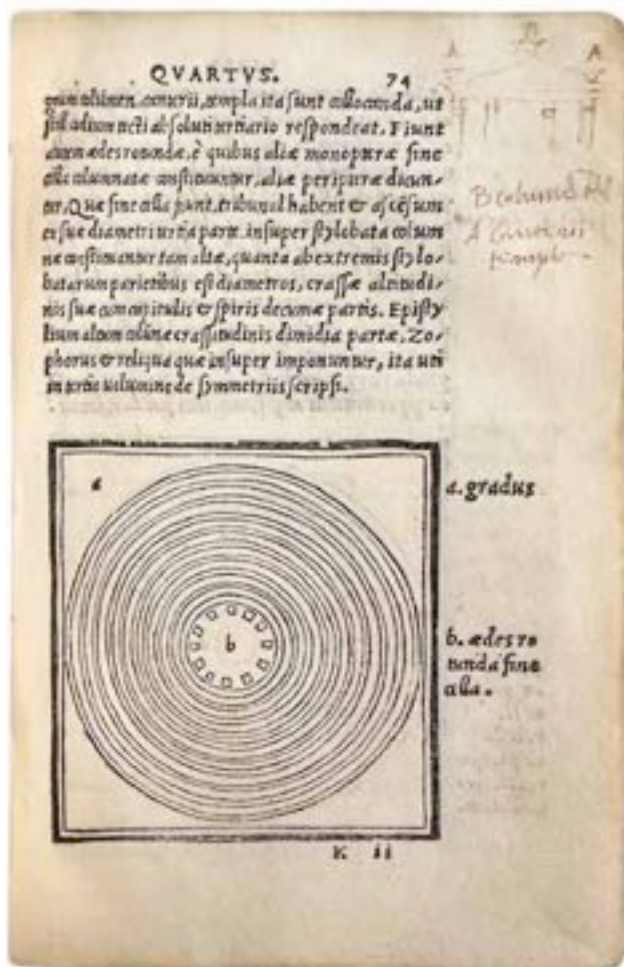 QVARTVS. 74
gnum columen, canterii, templa ita sunt collocanda, ut
stillicidium tecti absoluti tertiario respondeat. Fiunt
autem ædes rotundæ, è quibus aliæ monopteræ sine
cella columnatæ constituuntur, aliæ peripteræ dicun-
tur. Quæ sine cella fiunt, tribunal habent & ascēsum
ex suæ diametri tertia parte. insuper stylobata colum
næ constituuntur tam altæ, quanta ab extremis stylo-
batarum parietibus est diametros, crassæ altitudi-
nis suæ cum capitulis & spiris decumæ partis. Episty
lium altum columnæ crassitudinis dimidia parte. Zo-
phorus & reliqua quæ insuper imponuntur, ita uti
in tertio uolumine de symmetriis scripsi.
a
a. gradus
b
b. ædes ro
tunda sine
cella.
K ii